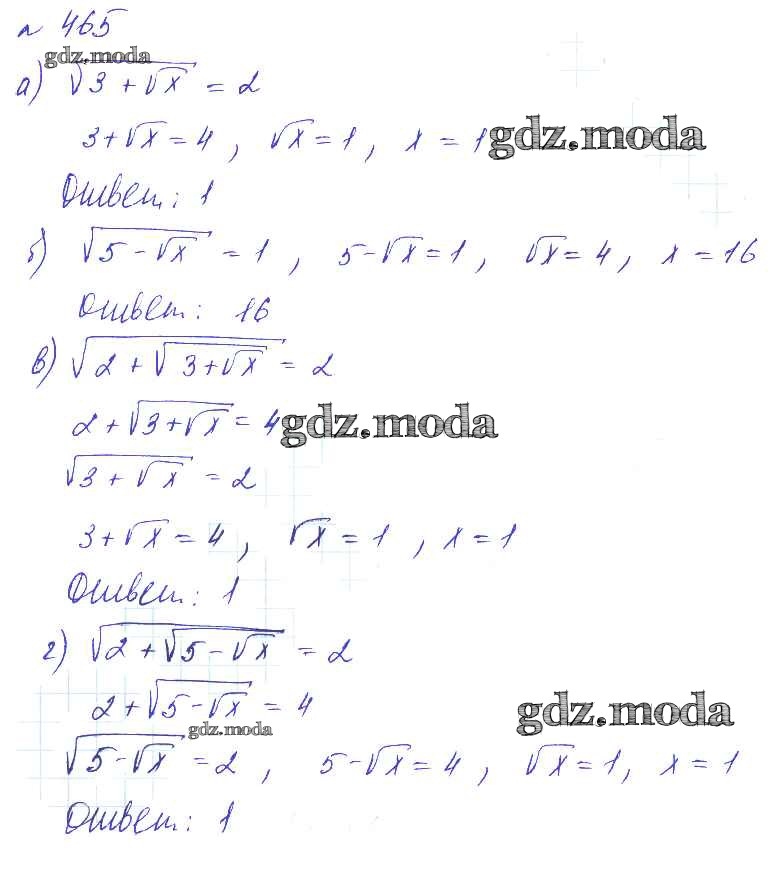 № 465
gdz.moda
а) √(3 + √x) = 2
3 + √x = 4, √x = 1, x = 1 gdz.moda
Ответ: 1
б) √(5 - √x) = 1, 5 - √x = 1, √x = 4, x = 16
Ответ: 16
в) √(2 + √(3 + √x)) = 2
2 + √(3 + √x) = 4 gdz.moda
√(3 + √x) = 2
3 + √x = 4, √x = 1, x = 1
Ответ: 1
г) √(2 + √(5 - √x)) = 2
2 + √(5 - √x) = 4 gdz.moda
gdz.moda
√(5 - √x) = 2, 5 - √x = 4, √x = 1, x = 1
Ответ: 1